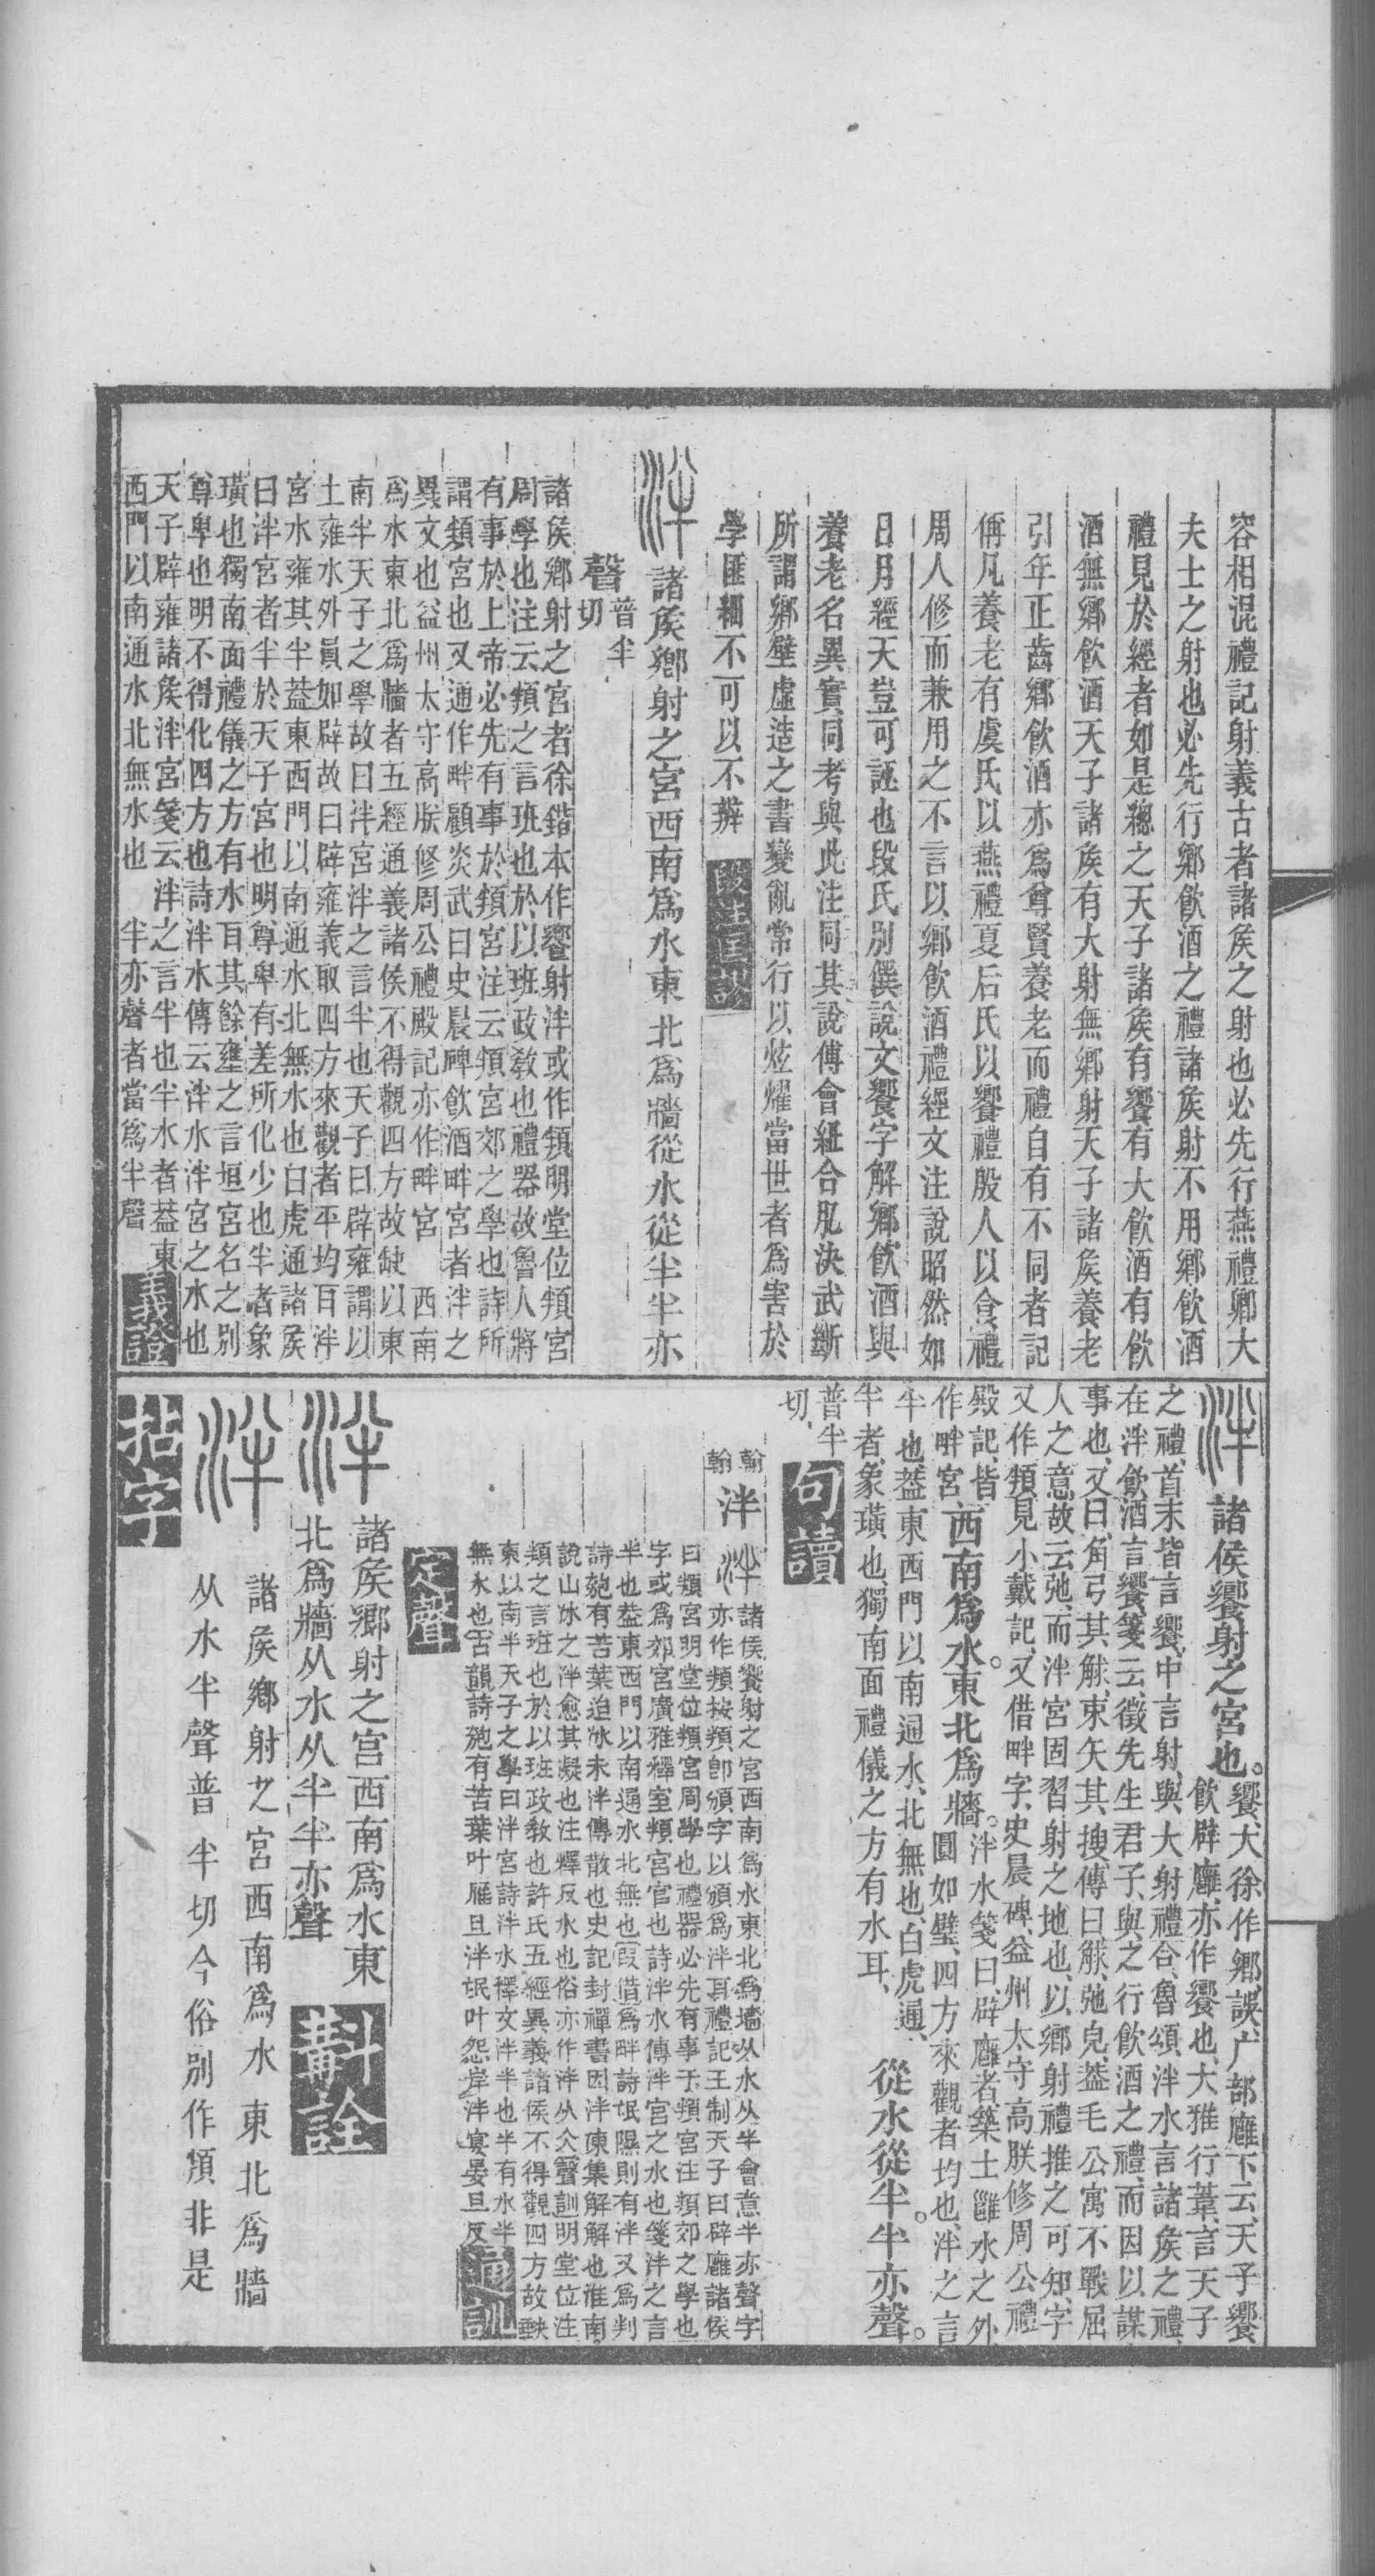 容相混禮記射義古者諸矦之射也必先行燕禮卿大
夫士之射也必先行鄉飮酒之禮諸矦射不用鄉飮酒
禮見於經者如是總之天子諸矦有饗有大飮酒有飮
酒無鄉飮酒天子諸矦有大射無鄉射天子諸矦養老
引年正齒鄉飮酒亦爲尊賢養老而禮自有不同者記
偁凡養老有虞氏以燕禮夏后氏以饗禮殷人以食禮
周人修而兼用之不言以鄉飮酒禮經文注說昭然如
日月經天豈可誣也段氏別僎說文饗字解鄉飮酒與
養老名異實同考與此注同其說傅會紐合肊決武斷
所謂鄉壁虛造之書變亂常行以炫燿當世者爲害於
學匪細不可以不辨 段注匡謬
泮 諸矦鄉射之宮西南爲水東北爲牆從水從半半亦
聲 普半切
諸矦鄉射之宮者徐鍇本作饗射泮或作頖明堂位頖宮
周學也注云頖之言班也於以班政敎也禮器故魯人將
有事於上帝必先有事於頖宮注云頖宮郊之學也詩所
謂頖宮也又通作畔顧炎武曰史晨碑飮酒畔宮者泮之
異文也益州太守高朕修周公禮殿記亦作畔宮 西南
爲水東北爲牆者五經通義諸侯不得觀四方故缺以東
南半天子之學故曰泮宮泮之言半也天子曰辟雍謂以
土雍水外員如辟故曰辟雍義取四方來觀者平均耳泮
宮水雍其半葢東西門以南通水北無水也白虎通諸矦
曰泮宮者半於天子宮也明尊卑有差所化少也半者象
璜也獨南面禮儀之方有水耳其餘壅之言垣宮名之別
尊卑也明不得化四方也詩泮水傳云泮水泮宮之水也
天子辟雍諸矦泮宮箋云泮之言半也半水者葢東
西門以南通水北無水也 半亦聲者當爲半聲 義證
泮 諸侯饗射之宮也。饗、大徐作鄉、誤、广部廱下云、天子饗
飮辟廱、亦作饗也、大雅行葦、言天子
之禮、首末皆言饗、中言射、與大射禮合、魯頌泮水言、諸矦之禮、
在泮飮酒、言饗、箋云、徵先生君子、與之行飮酒之禮、而因以謀
事也、又曰、角弓其觩、束矢其搜、傳曰、觩、弛皃、葢毛公寓不戰屈
人之意、故云弛、而泮宮固習射之地也、以鄉射禮推之可知、字
又作頖、見小戴記、又借畔字、史晨碑、益州太守高朕修周公禮
殿記、皆作畔宮、西南爲水。東北爲牆。泮水箋曰、辟廱者、築土雝水之外
圓如璧、四方來觀者均也、泮之言
半也、葢東西門以南通水、北無也、白虎通、
半者、象璜也、獨南面禮儀之方有水耳、 從水從半。半亦聲。
普半切、 句讀
翰翰 泮 泮 諸侯饗射之宮西南爲水東北爲墻从水从半會意半亦聲字
亦作頖按頖卽頒字以頒爲泮耳禮記王制天子曰辟廱諸侯
曰頖宮明堂位頖宮周學也禮器必先有事于頖宮注頖郊之學也
字或爲郊宮廣雅釋室頖宮官也詩泮水傳泮宮之水也箋泮之言
半也葢東西門以南通水北無也(假借)爲畔詩氓隰則有泮又爲判
詩匏有苦葉迨冰未泮傳散也史記封禪書因泮凍集解解也淮南
說山冰之泮愈其凝也注釋反水也俗亦作泮从仌(聲訓)明堂位注
頖之言班也於以班政敎也許氏五經異義諸侯不得觀四方故缺
東以南半天子之學曰泮宮詩泮水釋文泮半也半有水半
無水也(古韻)詩匏有苦葉叶雁旦泮氓叶怨岸泮宴晏旦反 通訓
定聲
泮 諸矦鄉射之宮西南爲水東
北爲牆从水从半半亦聲 斠詮
泮 諸矦鄉射之宮西南爲水東北爲牆
从水半聲普半切今俗別作頖非是
拈字